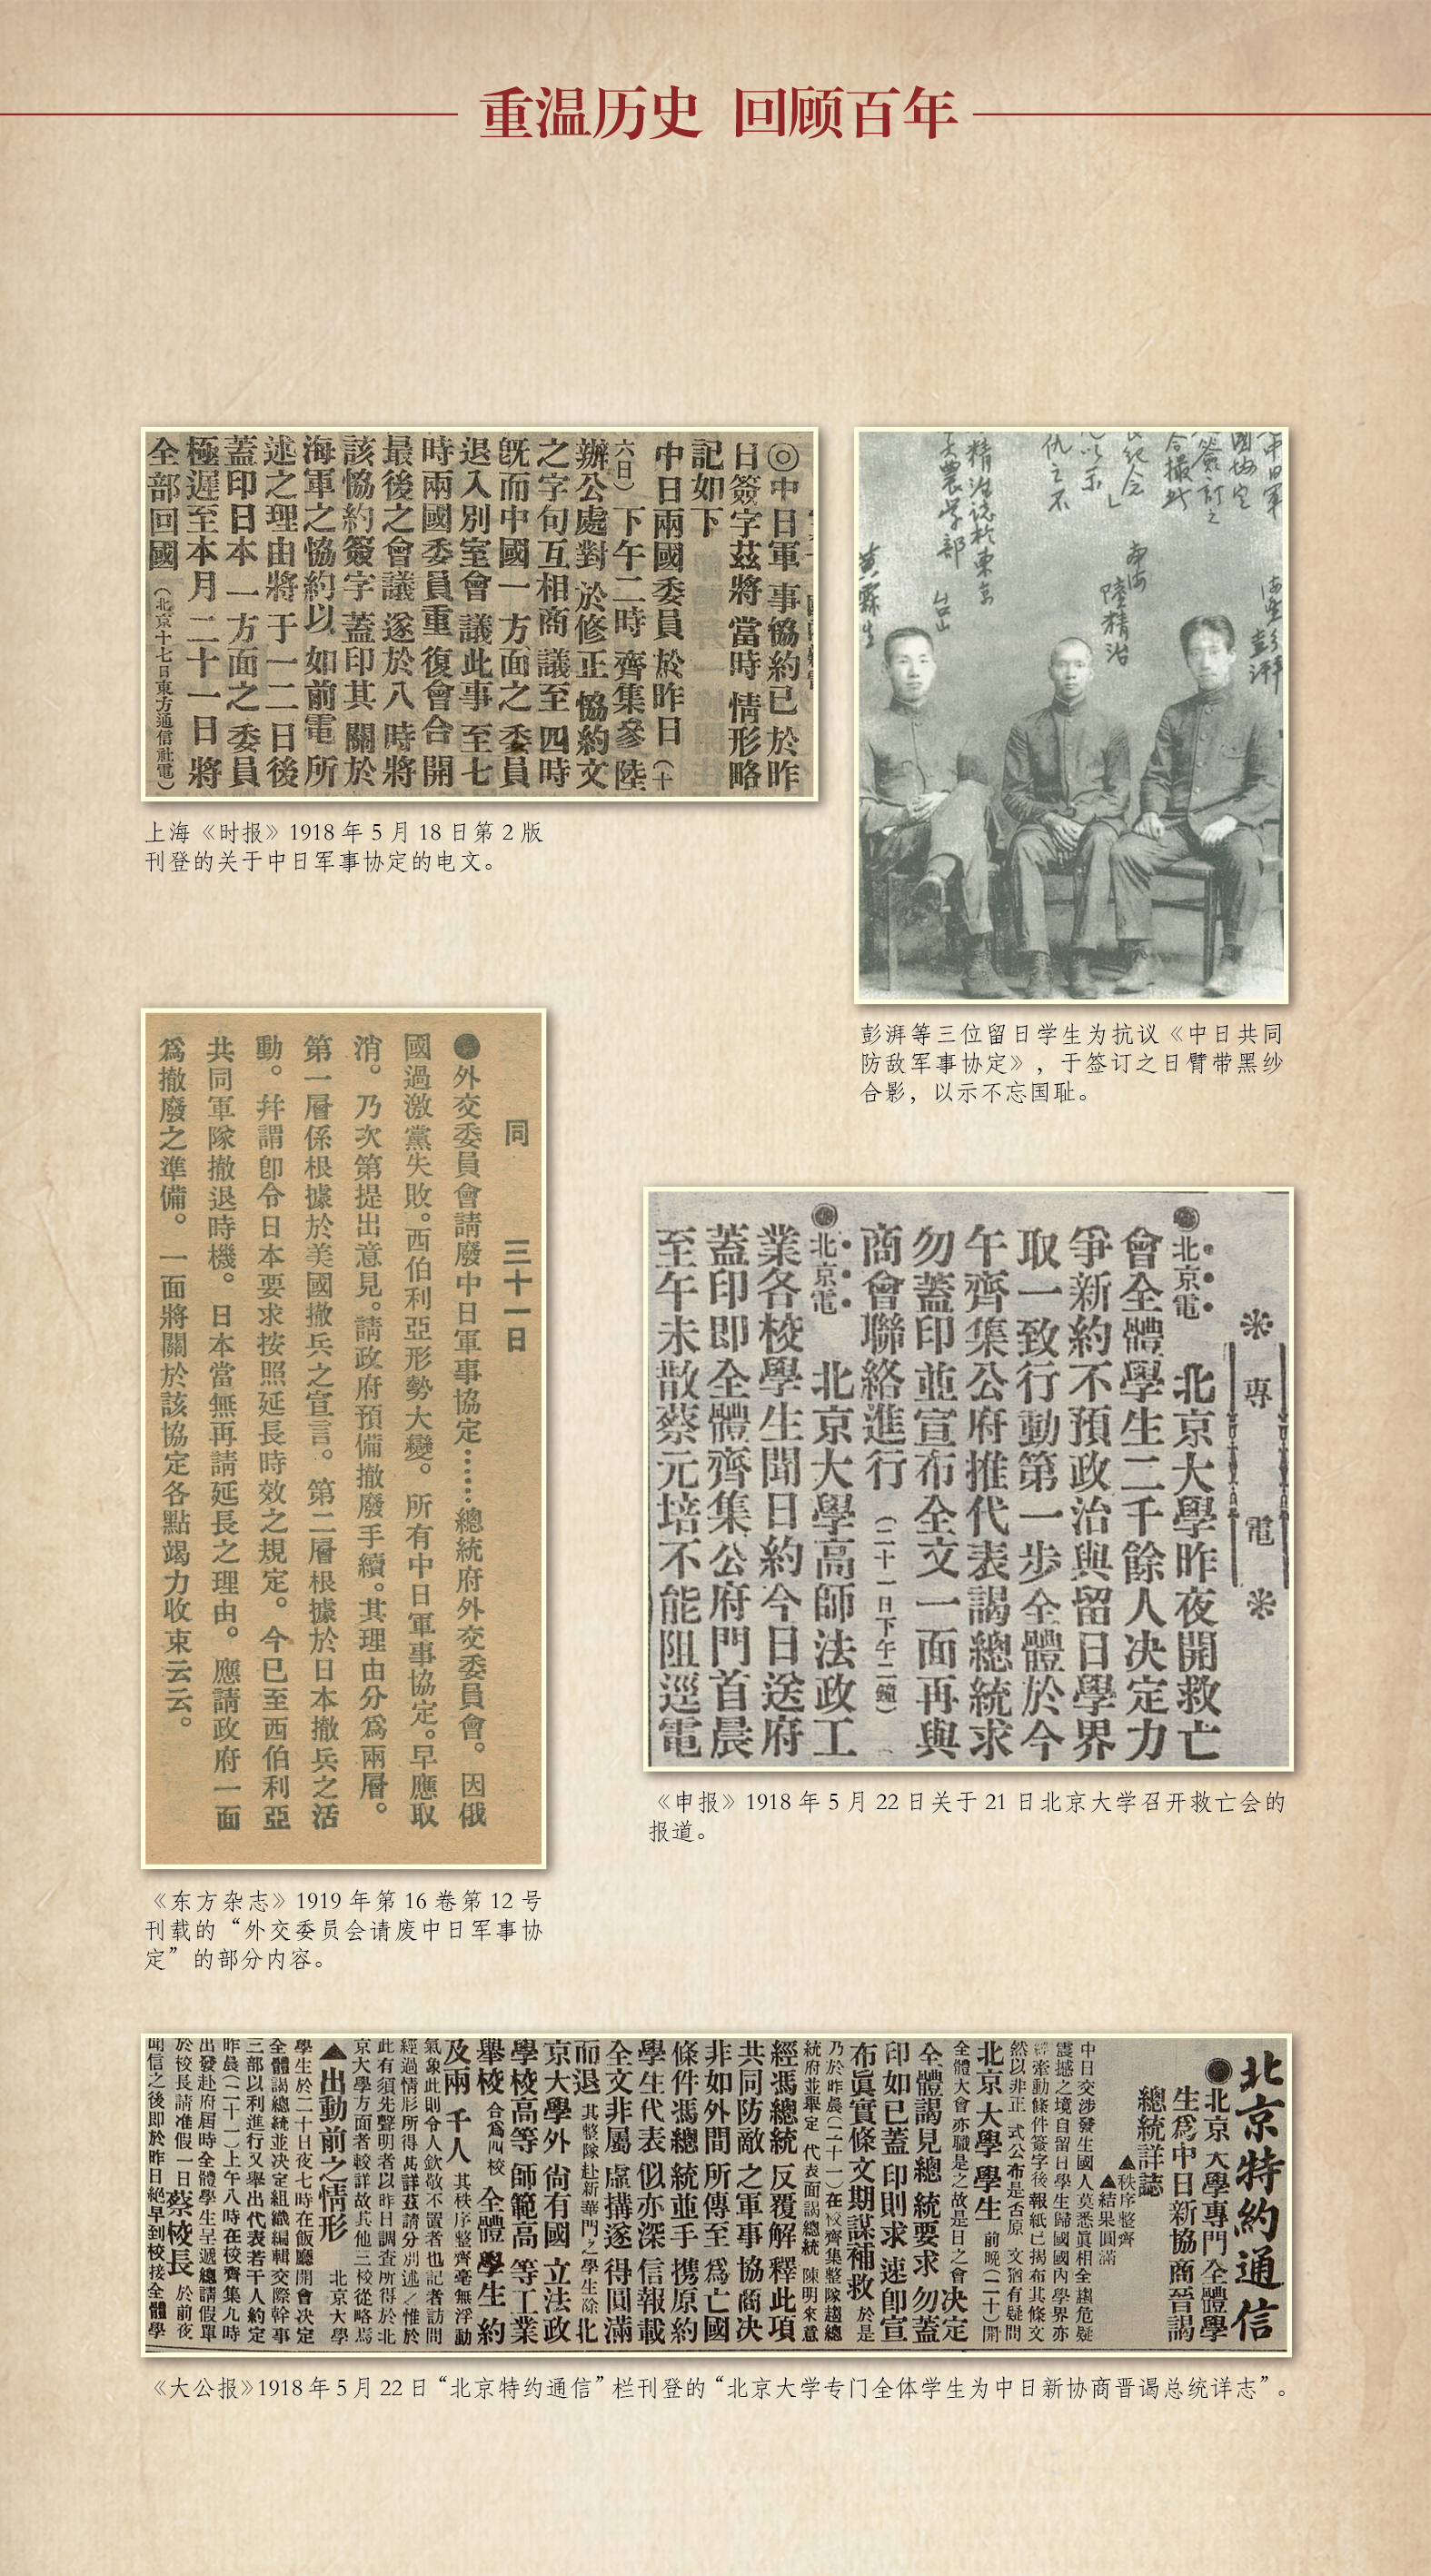 重温历史 回顾百年
◎中日軍事協約已於昨
日簽字茲將當時情形略
記如下
中日兩國委員於昨日（十
六日）下午二時齊集參陸
辦公處對於修正協約文
之字句互相商議至四時
旣而中國一方面之委員
退入別室會議此事至七
時兩國委員重復會合開
最後之會議遂於八時將
該協約簽字蓋印其關於
海軍之協約以如前電所
述之理由將于一二日後
蓋印日本一方面之委員
極遲至本月二十一日將
全部回國（北京十七日東方通信社電）
上海《时报》1918 年 5 月 18 日第 2 版
刊登的关于中日军事协定的电文。
中日軍
國協定
簽訂之
合撮此
紀念」
以示
仇之不
海豐 彭湃
南海 陸精治
精治誌於東京
大農学部
台山
黄霖生
彭湃等三位留日学生为抗议《中日共同
防敌军事协定》，于签订之日臂带黑纱
合影，以示不忘国耻。
同 三十一日
●外交委員會請廢中日軍事協定……總統府外交委員會。因俄
國過激黨失敗。西伯利亞形勢大變。所有中日軍事協定。早應取
消。乃次第提出意見。請政府預備撤廢手續。其理由分爲兩層。
第一層係根據於美國撤兵之宣言。第二層根據於日本撤兵之活
動。幷謂卽令日本要求按照延長時效之規定。今已至西伯利亞
共同軍隊撤退時機。日本當無再請延長之理由。應請政府一面
爲撤廢之準備。一面將關於該協定各點竭力收束云云。
《东方杂志》1919 年第 16 卷第 12 号
刊载的“外交委员会请废中日军事协
定”的部分内容。
專電
●北京電 北京大學昨夜開救亡
會全體學生二千餘人决定力
爭新約不預政治與留日學界
取一致行動第一步全體於今
午齊集公府推代表謁總統求
勿蓋印並宣布全文一面再與
商會聯絡進行（二十一日下午二鐘）
●北京電 北京大學高師法政工
業各校學生聞日約今日送府
蓋印即全體齊集公府門首晨
至午未散蔡元培不能阻逕電
《申报》1918 年 5 月 22 日关于 21 日北京大学召开救亡会的
报道。
北京特約通信
●北京大學專門全體學
生爲中日新協商晉謁
總統詳誌
▲秩序整齊
▲結果圓滿
中日交涉發生國人莫悉眞相全趨危疑
震撼之境自留日學生歸國國內學界亦
牽動條件簽字後報紙已揭布其條文
然以非正式公布是否原文猶有疑問
北京大學學生前晚（二十）開
全體大會亦職是之故是日之會决定
全體謁見總統要求勿蓋
印如已蓋印則求速卽宣
布眞實條文期謀補救於是
乃於昨晨（二十一）在校齊集整隊趨總
統府並舉定代表面謁總統陳明來意
經馮總統反覆解釋此項
共同防敵之軍事協商决
非如外間所傳至爲亡國
條件馮總統並手携原約
學生代表似亦深信報載
全文非屬虛搆遂得圓滿
而退其整隊赴新華門之學生除北
京大學外尙有國立法政
學校高等師範高等工業
舉校合爲四校全體學生約
及兩千人其秩序整齊毫無浮動
氣象此則令人欽敬不置者也記者訪問
經過情形所得甚詳茲請分別述之惟於
此有須先聲明者以昨日調查所得於北
京大學方面者較詳故其他三校從略焉
▲出動前之情形 北京大學
學生於二十日夜七時在飯廳開會决定
全體謁總統並决定組織編輯交際幹事
三部以利進行又舉出代表若干人約定
昨晨（二十一）上午八時在校齊集九時
出發赴府屆時全體學生呈遞總請假單
於校長請准假一日蔡校長於前夜
聞信之後即於昨日絕早到校接全體學
《大公报》1918 年 5 月 22 日“北京特约通信”栏刊登的“北京大学专门全体学生为中日新协商晋谒总统详志”。